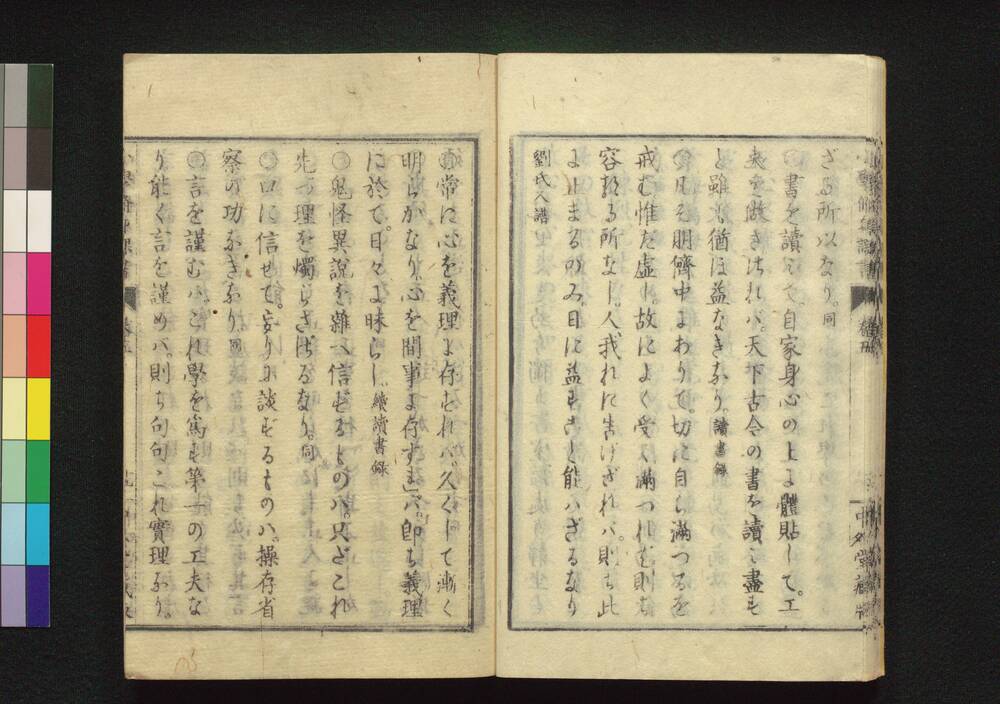 ざる所以なり。同
○書を讀んで自家身心の上よ體貼して。工
夫を做さゞれバ。天下古今の書を讀ミ盡も
と雖も猶ほ益なきなり。讀書録
○凡そ朋儕中よありて。切に自ら滿つるを
戒む惟だ虚し。故によく受く滿つれバ則ち
容るゝ所なし。人我れに告げざれバ。則ち此
よ止まるのみ。日に益もさと能ハざるなり
劉氏人譜
○常に心を義理よ存せれバ。久くして漸く
明らかなり。心を閒事よ存すれバ。即ち義理
に於て。日々よ昧らし。續讀書録
○鬼怪異說を雜へ信ぜるものハ。只だこれ
先づ理を燭らさゞるなり。同
○口に信せて。妄りふ談ずるものハ。操存省
察の功なきなり。同
○言を謹むハ。これ學を爲も第一の工夫な
り能く言を謹めバ。則ち句句これ實理なり。